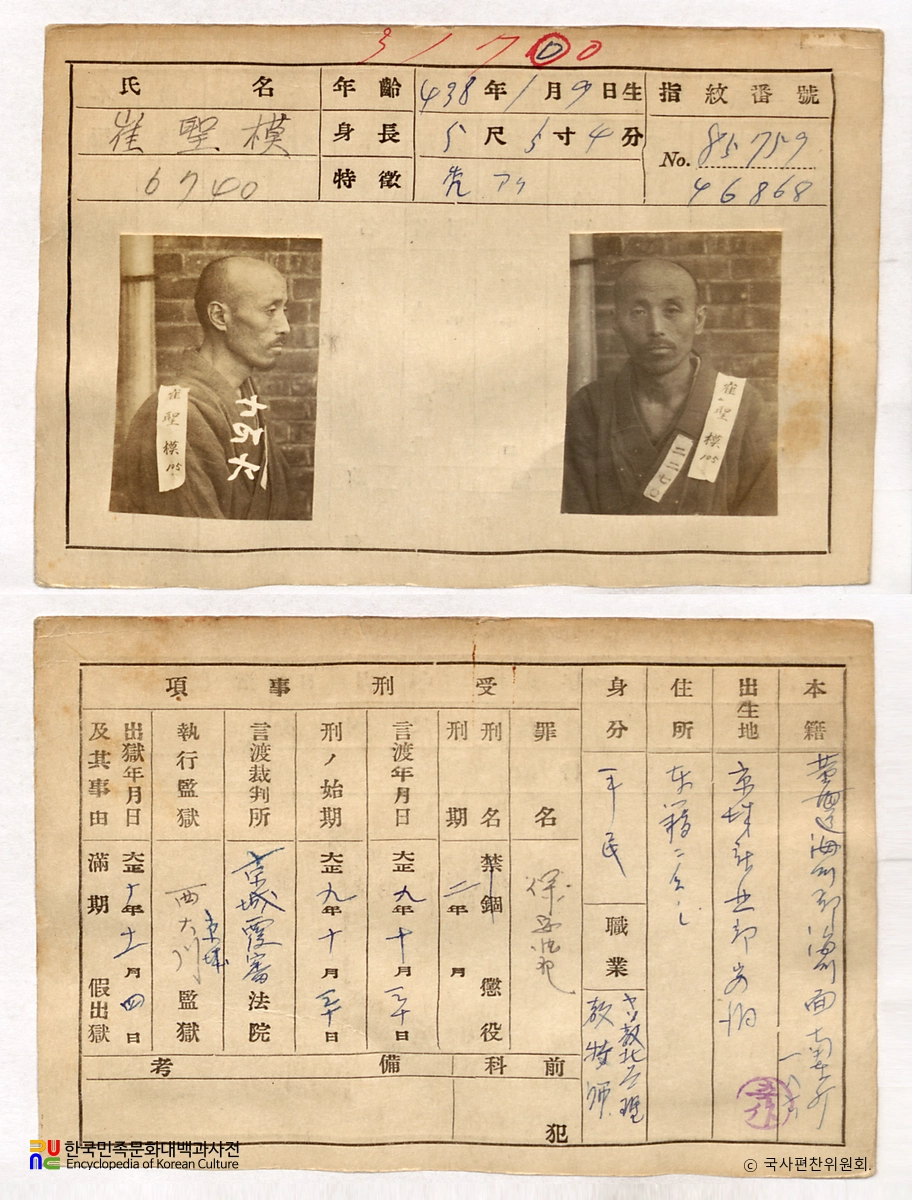 31700
氏名
崔聖模
6740
年齡
438年1月9日生
身長
5尺5寸4分
特徵
指紋番號
No. 85759
46868
崔聖模
崔聖模
二二七〇
本籍
黃海道海州郡海州面
出生地
京城
住所
本籍ニ仝シ
身分
平民
職業
受刑事項
罪名
保安法犯
刑名
禁錮
懲役
刑期
二年
月
言渡年月日
大正九年十月三十日
刑ノ始期
大正九年十月三十日
言渡裁判所
京城覆審法院
執行監獄
西大門監獄
京城
出獄年月日及其事由
大正十年十一月四日
滿期
假出獄
前科
犯
備考
한국민족문화대백과사전
Encyclopedia of Korean Culture
© 국사편찬위원회.